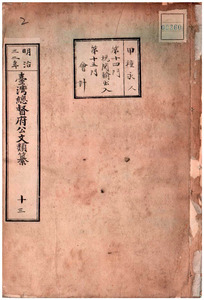 2
甲種永久
第十四門
税関輸出入
第十五門
會計
明治
二八年
臺灣總督府公文類纂
十三